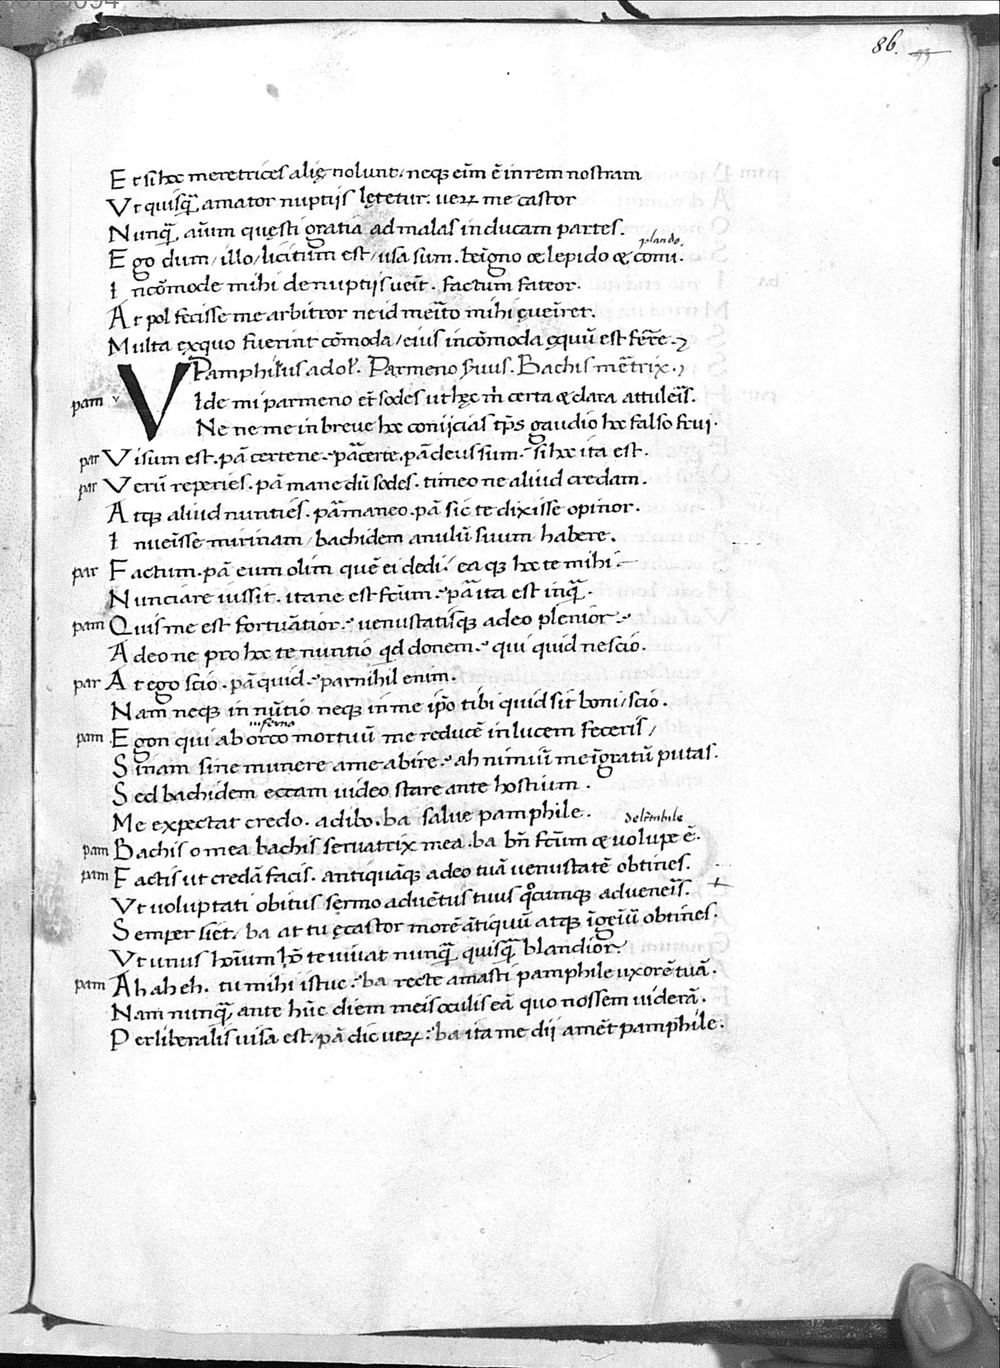 86. 93
Et si hoc meretrices alię nolunt. neqꝫ eīm ē in rem nostram
Vt quisq̄ amator nuptijs lętetur. ueꝝ me castor
Nunq̄, aīum quęsti gratia ad malas inducam partes.
plando.
Ego dum, illo, licitum est, usa sum. beīgno & lepido & comi.
Incōmode mihi de nuptijs ueīt. factum fateor.
At pol fecisse me arbitror ne id meīto mihi eueīret.
Multa ex quo fuerint cōmoda, eius incōmoda ęquū est ferr̄e.
Pamphilus adol'. Parmeno seruus. Bachis mētrix.
pam VIde mi parmeno et̄ sodes ut hęc m̄ certa & clara attuleīs.
Ne ne me in breue hoc conijcias tp̄s gaudio hoc falso frui.
par Visum est. pā certene. pā certe. pā deus sum. si hoc ita est.
par Verū reperies. pā mane dū sodes. timeo ne aliud credam.
Atqꝫ aliud nunties. pā maneo. pā sic te dixisse opinor.
Inueīsse mirinam, bachidem anulū suum habere.
par Factum. pā eum olim quē ei dedi. eaqꝫ hoc te mihi
Nunciare iussit. itane est fc̄um. pā ita est inq̄.
pam Quis me est fortuātior. uenustatisqꝫ adeo plenior.
Adeo ne pro hoc te nuntio qd donem. qui quid nescio.
par At ego scio. pā quid. par nihil enim.
Nam neqꝫ in nūtio neqꝫ in me ip̄o tibi quid sit boni, scio.
inferno
pam Egon qui ab orco mortuū me reducē in lucem feceris,
Sinam sine munere a me abire. ah nimiū me īgratū putas.
Sed bachidem eccam uideo stare ante hostium.
Me expectat credo. adibo. ba salue pamphile.
delectabile
pam Bachis o mea bachis seruatrix mea. ba bn̄ fc̄um & uolupe ē.
pam Factis ut credā facis. antiquāqꝫ adeo tuā uenustatē obtines.
Vt uoluptati obitus sermo aduētus tuus qōcumqꝫ adueneīs.
Semper siet. ba at tu ęcastor morē ātiquū atqꝫ īgeīū obtines.
Vt unus hoīum hō te uiuat nunq̄ quisq̄ blandior.
pam Ah ah eh. tu mihi istuc. ba recte amasti pamphile uxorē tuā.
Nam nunq̄, ante hūc diem meis oculis eā quo nossem uiderā.
Perliberalis uisa est. pā dic ueꝝ. ba ita me dii amēt pamphile.